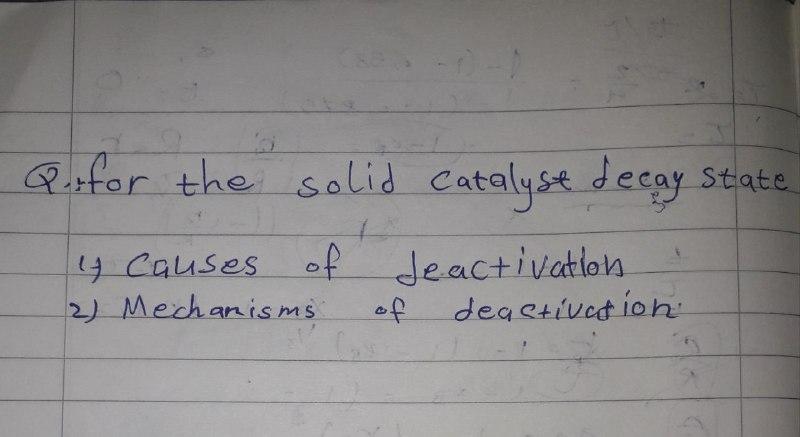 Q.: for the solid catalyst decay, state
1) Causes of deactivation
2) Mechanisms of deactivation.